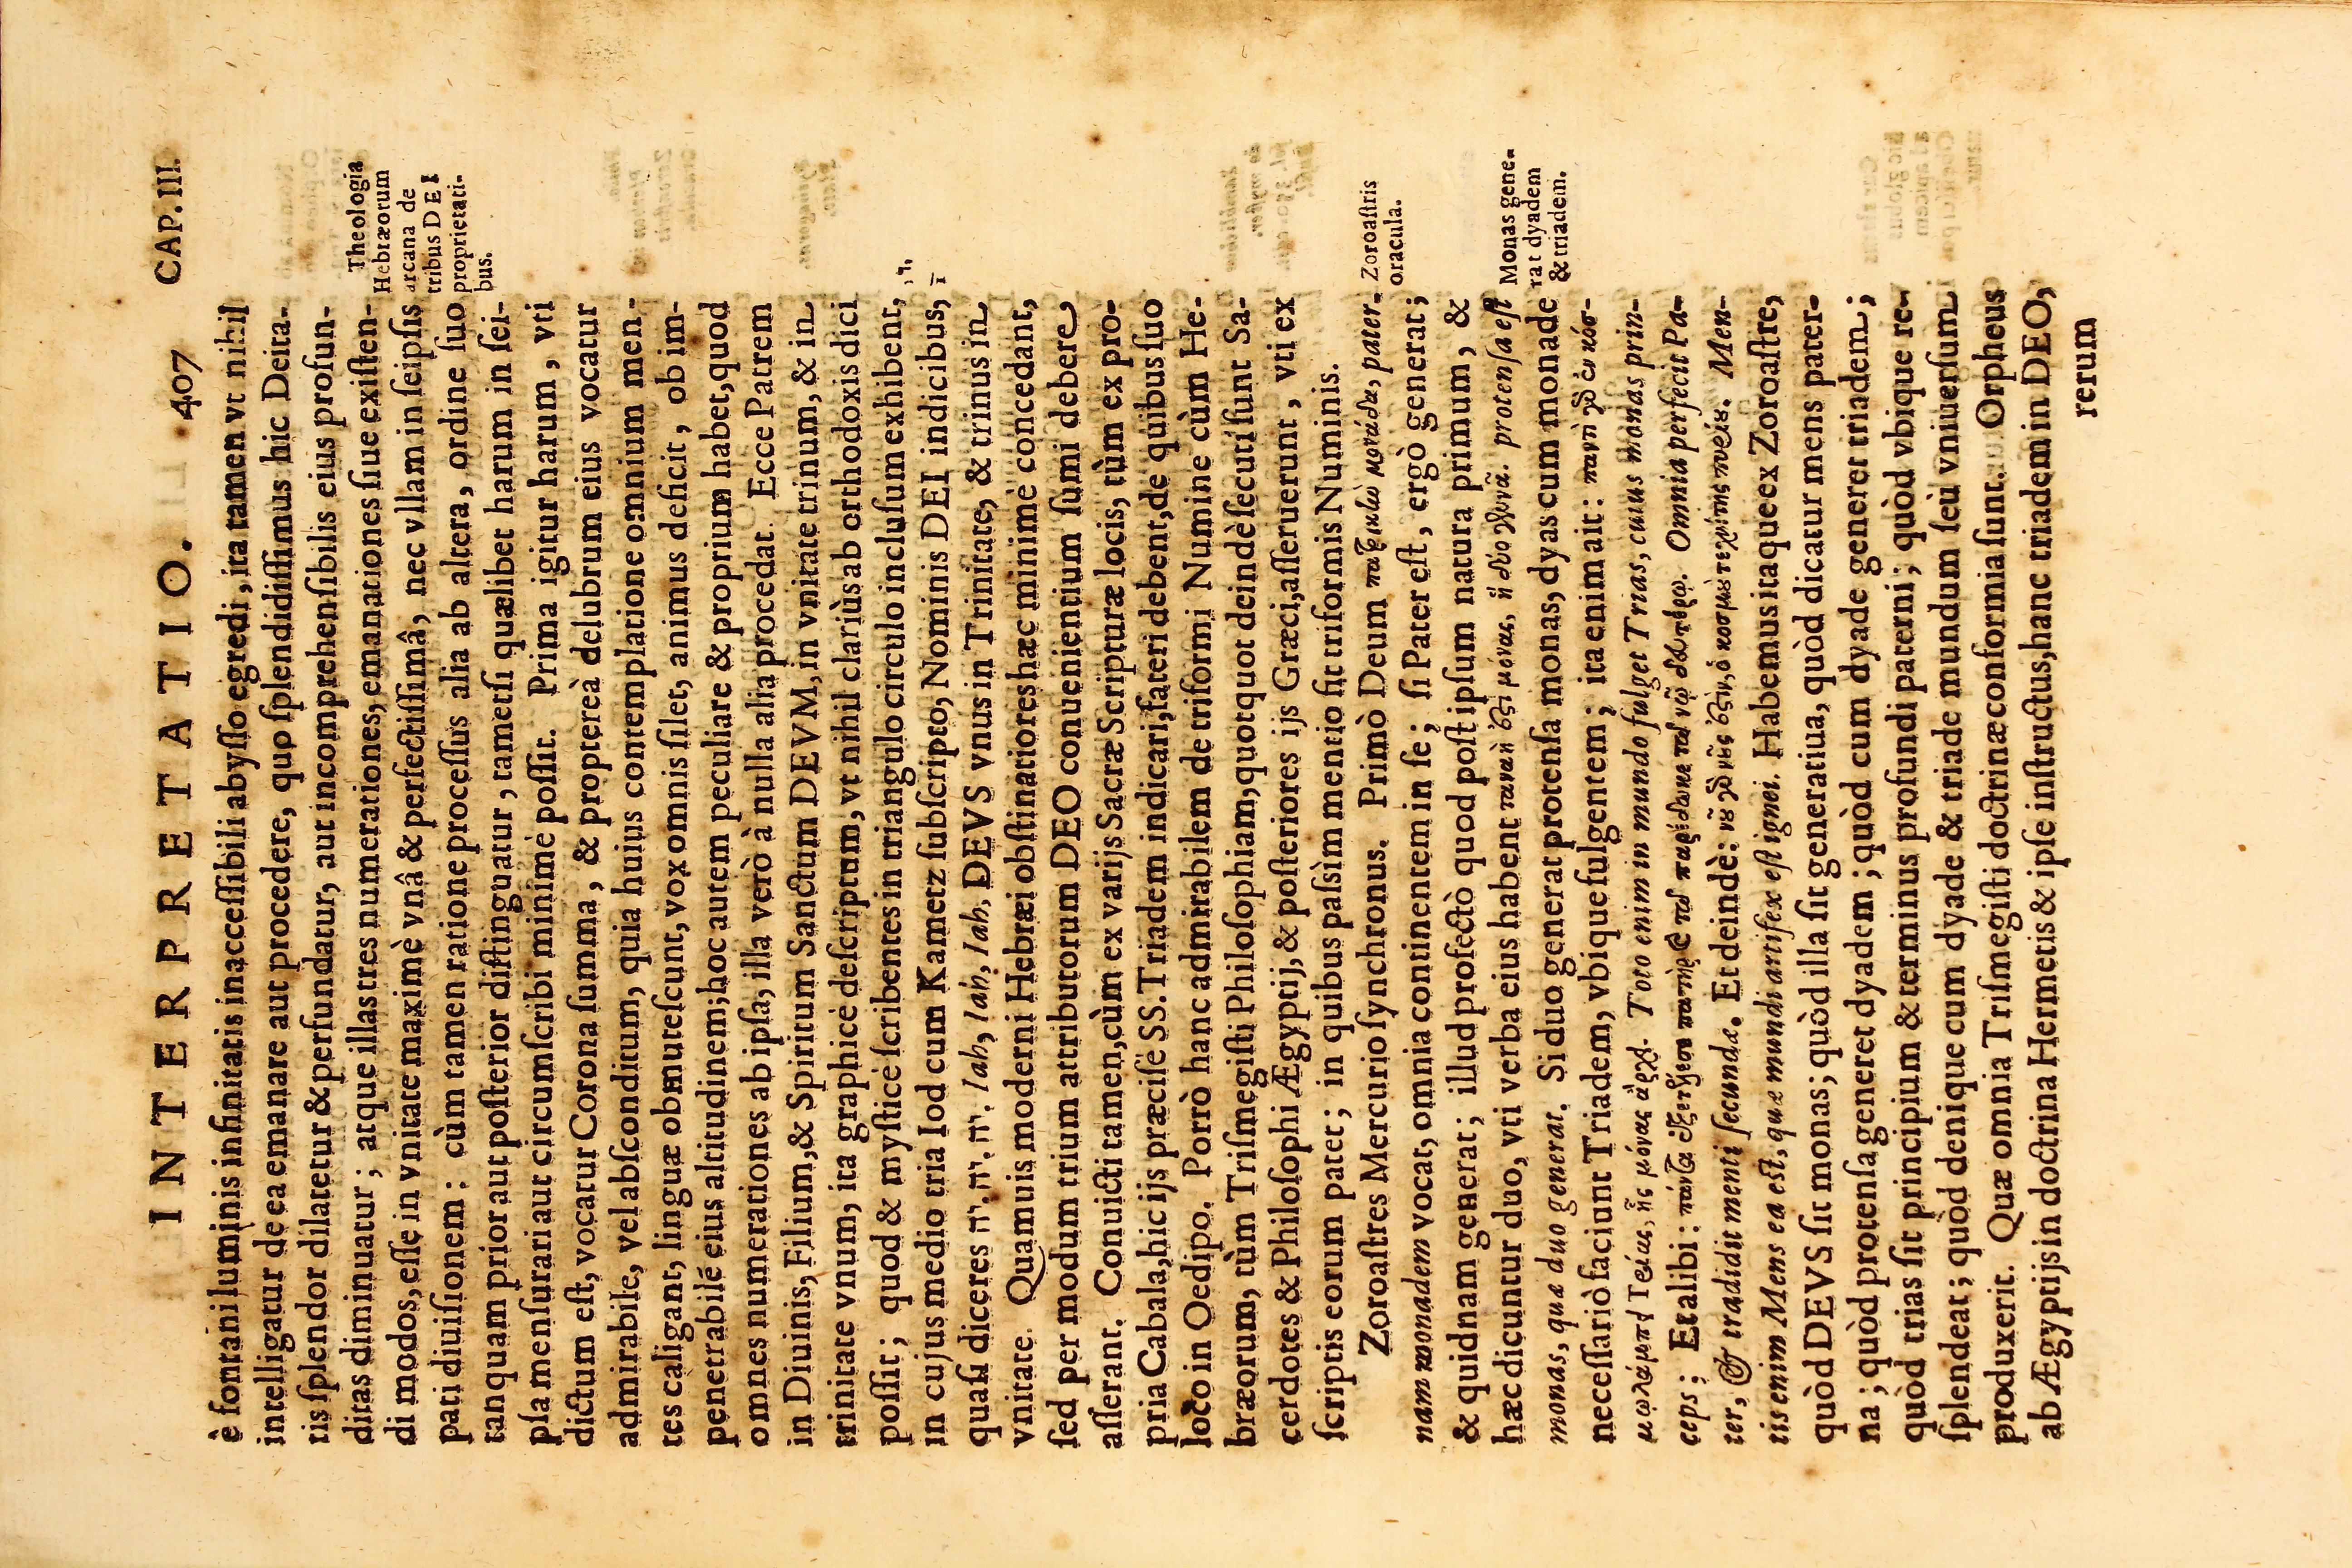 INTERPRETATIO. 407 CAP. III.
è fontani luminis infinitatis inaccessibili abysso egredi, ita tamen vt nihil
intelligatur de ea emanare aut procedere, quo splendidissimus hic Deita-
tis splendor dilatetur & perfundatur, aut incomprehensibilis eius profun-
ditas diminuatur; atque illastres numerationes, emanationes siue existen-
di modos, esse in vnitate maximè vnâ & perfectissimâ, nec vllam in seipsis
pati diuisionem: cùm tamen ratione processus alia ab altera, ordine suo
tanquam prior aut posterior distinguatur, tametsi quælibet harum in sei-
psa mensurari aut circumscribi minimè possit. Prima igitur harum, vti
dictum est, vocatur Corona summa, & proptereà delubrum eius vocatur
admirabile, vel absconditum, quia huius contemplatione omnium men-
tes caligant, linguæ obmutescunt, vox omnis silet, animus deficit, ob im-
penetrabilē eius altitudinem; hoc autem peculiare & proprium habet, quod
omnes numerationes ab ipsa, illa verò à nulla alia procedat. Ecce Patrem
in Diuinis, Filium, & Spiritum Sanctum DEVM, in vnitate trinum, & in
trinitate vnum, ita graphicè descriptum, vt nihil clariùs ab orthodoxis dici
possit; quod & mysticè scribentes in triangulo circulo inclusum exhibent,
in cujus medio tria Iod cum Kametz subscripto, Nominis DEI indicibus,
quasi diceres יה. יה. יה. Iah, Iah, Iah, DEVS vnus in Trinitate, & trinus in
vnitate. Quamuis moderni Hebræi obstinatiores hæc minimè concedant,
sed per modum trium attributorum DEO conuenientium sumi debere
asserant. Conuicti tamen, cùm ex varijs Sacræ Scripturæ locis, tùm ex pro-
pria Cabala, hic ijs præcisè SS. Triadem indicari, fateri debent, de quibus suo
loco in Oedipo. Porrò hanc admirabilem de triformi Numine cùm He-
bræorum, tùm Trismegisti Philosophiam, quotquot deindè secuti sunt Sa-
cerdotes & Philosophi Ægyptij, & posteriores ijs Græci, asseruerunt, vti ex
scriptis eorum patet; in quibus passìm mentio fit triformis Numinis.
Zoroastres Mercurio synchronus. Primò Deum πατρικὴν μονάδα, pater-
nam monadem vocat, omnia continentem in se; si Pater est, ergò generat;
& quidnam generat; illud profectò quod post ipsum natura primum, &
hæc dicuntur duo, vti verba eius habent ταναὴ ἐστι μόνας, ἣ δύο γεννᾶ. protensa est
monas, qua duo generat. Si duo generat protensa monas, dyas cum monade
necessariò faciunt Triadem, vbique fulgentem; ita enim ait: παντὶ γὰρ ἐν κόσ-
μῳ λάμπει Τρίας, ἧς μόνας ἀρχή. Toto enim in mundo fulget Trias, cuius monas prin-
ceps; Et alibi: πάντα ἐξετέλεσε πατὴρ καὶ τῷ παρέδωκε τῷ νῷ δευτέρῳ. Omnia perfecit Pa-
ter, & tradidit menti secundæ. Et deindè: νοῦ γὰρ νοῦς ἐστιν, ὁ κοσμῶ τεχνίτης πυρίου. Men-
tis enim Mens ea est, quæ mundi artifex est ignei. Habemus itaque ex Zoroastre,
quòd DEVS sit monas; quòd illa sit generatiua, quòd dicatur mens pater-
na; quòd protensa generet dyadem; quòd cum dyade generet triadem;
quòd trias sit principium & terminus profundi paterni; quòd vbique re-
splendeat; quòd denique cum dyade & triade mundum seù vniuersum
produxerit. Quæ omnia Trismegisti doctrinæ conformia sunt. Orpheus
ab Ægyptijs in doctrina Hermetis & ipse instructus, hanc triadem in DEO,
rerum
Theologia
Hebræorum
arcana de
tribus DEI
proprietati-
bus.
Zoroastris
oracula.
Monas gene-
rat dyadem
& triadem.